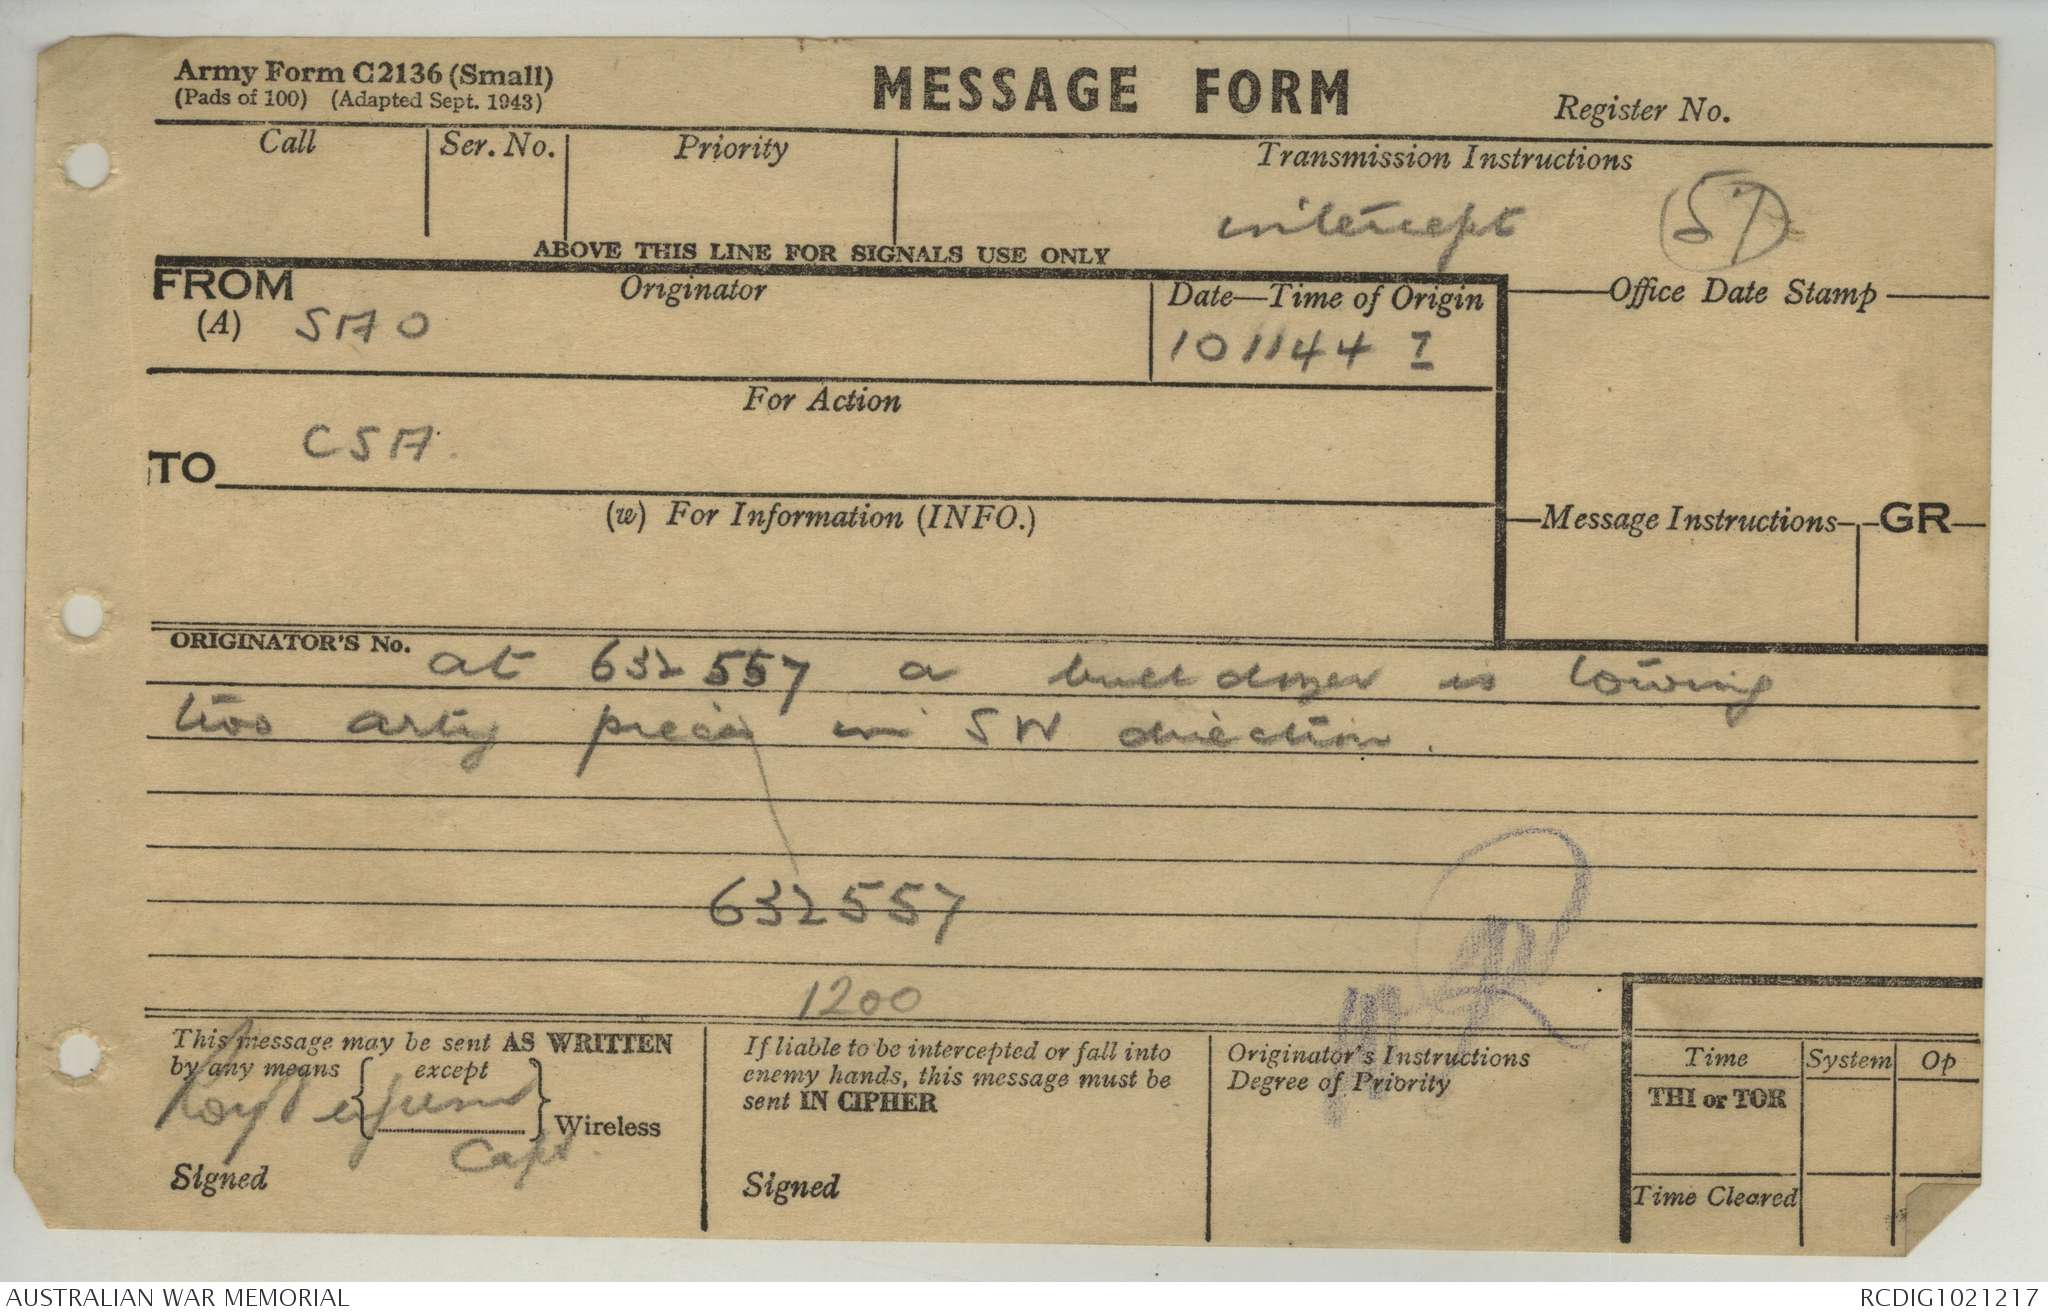 Army Form C2136 (Small)
(Pads of 100) (Adapted Sept. 1943)
MESSAGE FORM
Register No.
Call
Ser. No.
Priority
Transmission Instructions
intercept
57
ABOVE THIS LINE FOR SIGNALS USE ONLY
FROM
(A)
Originator
SAO
Date—Time of Origin
101144 I
Office Date Stamp
For Action
TO
CSA.
(w) For Information (INFO.)
Message Instructions
GR
ORIGINATOR'S No.
at 632557 a bulldozer is towing
two arty pieces in SW direction.
632557
1200
This message may be sent AS WRITTEN
by any means { except } Wireless
Capt.
Signed
If liable to be intercepted or fall into
enemy hands, this message must be
sent IN CIPHER
Signed
Originator's Instructions
Degree of Priority
Time
System
Op
THI or TOR
Time Cleared
AUSTRALIAN WAR MEMORIAL
RCDIG1021217